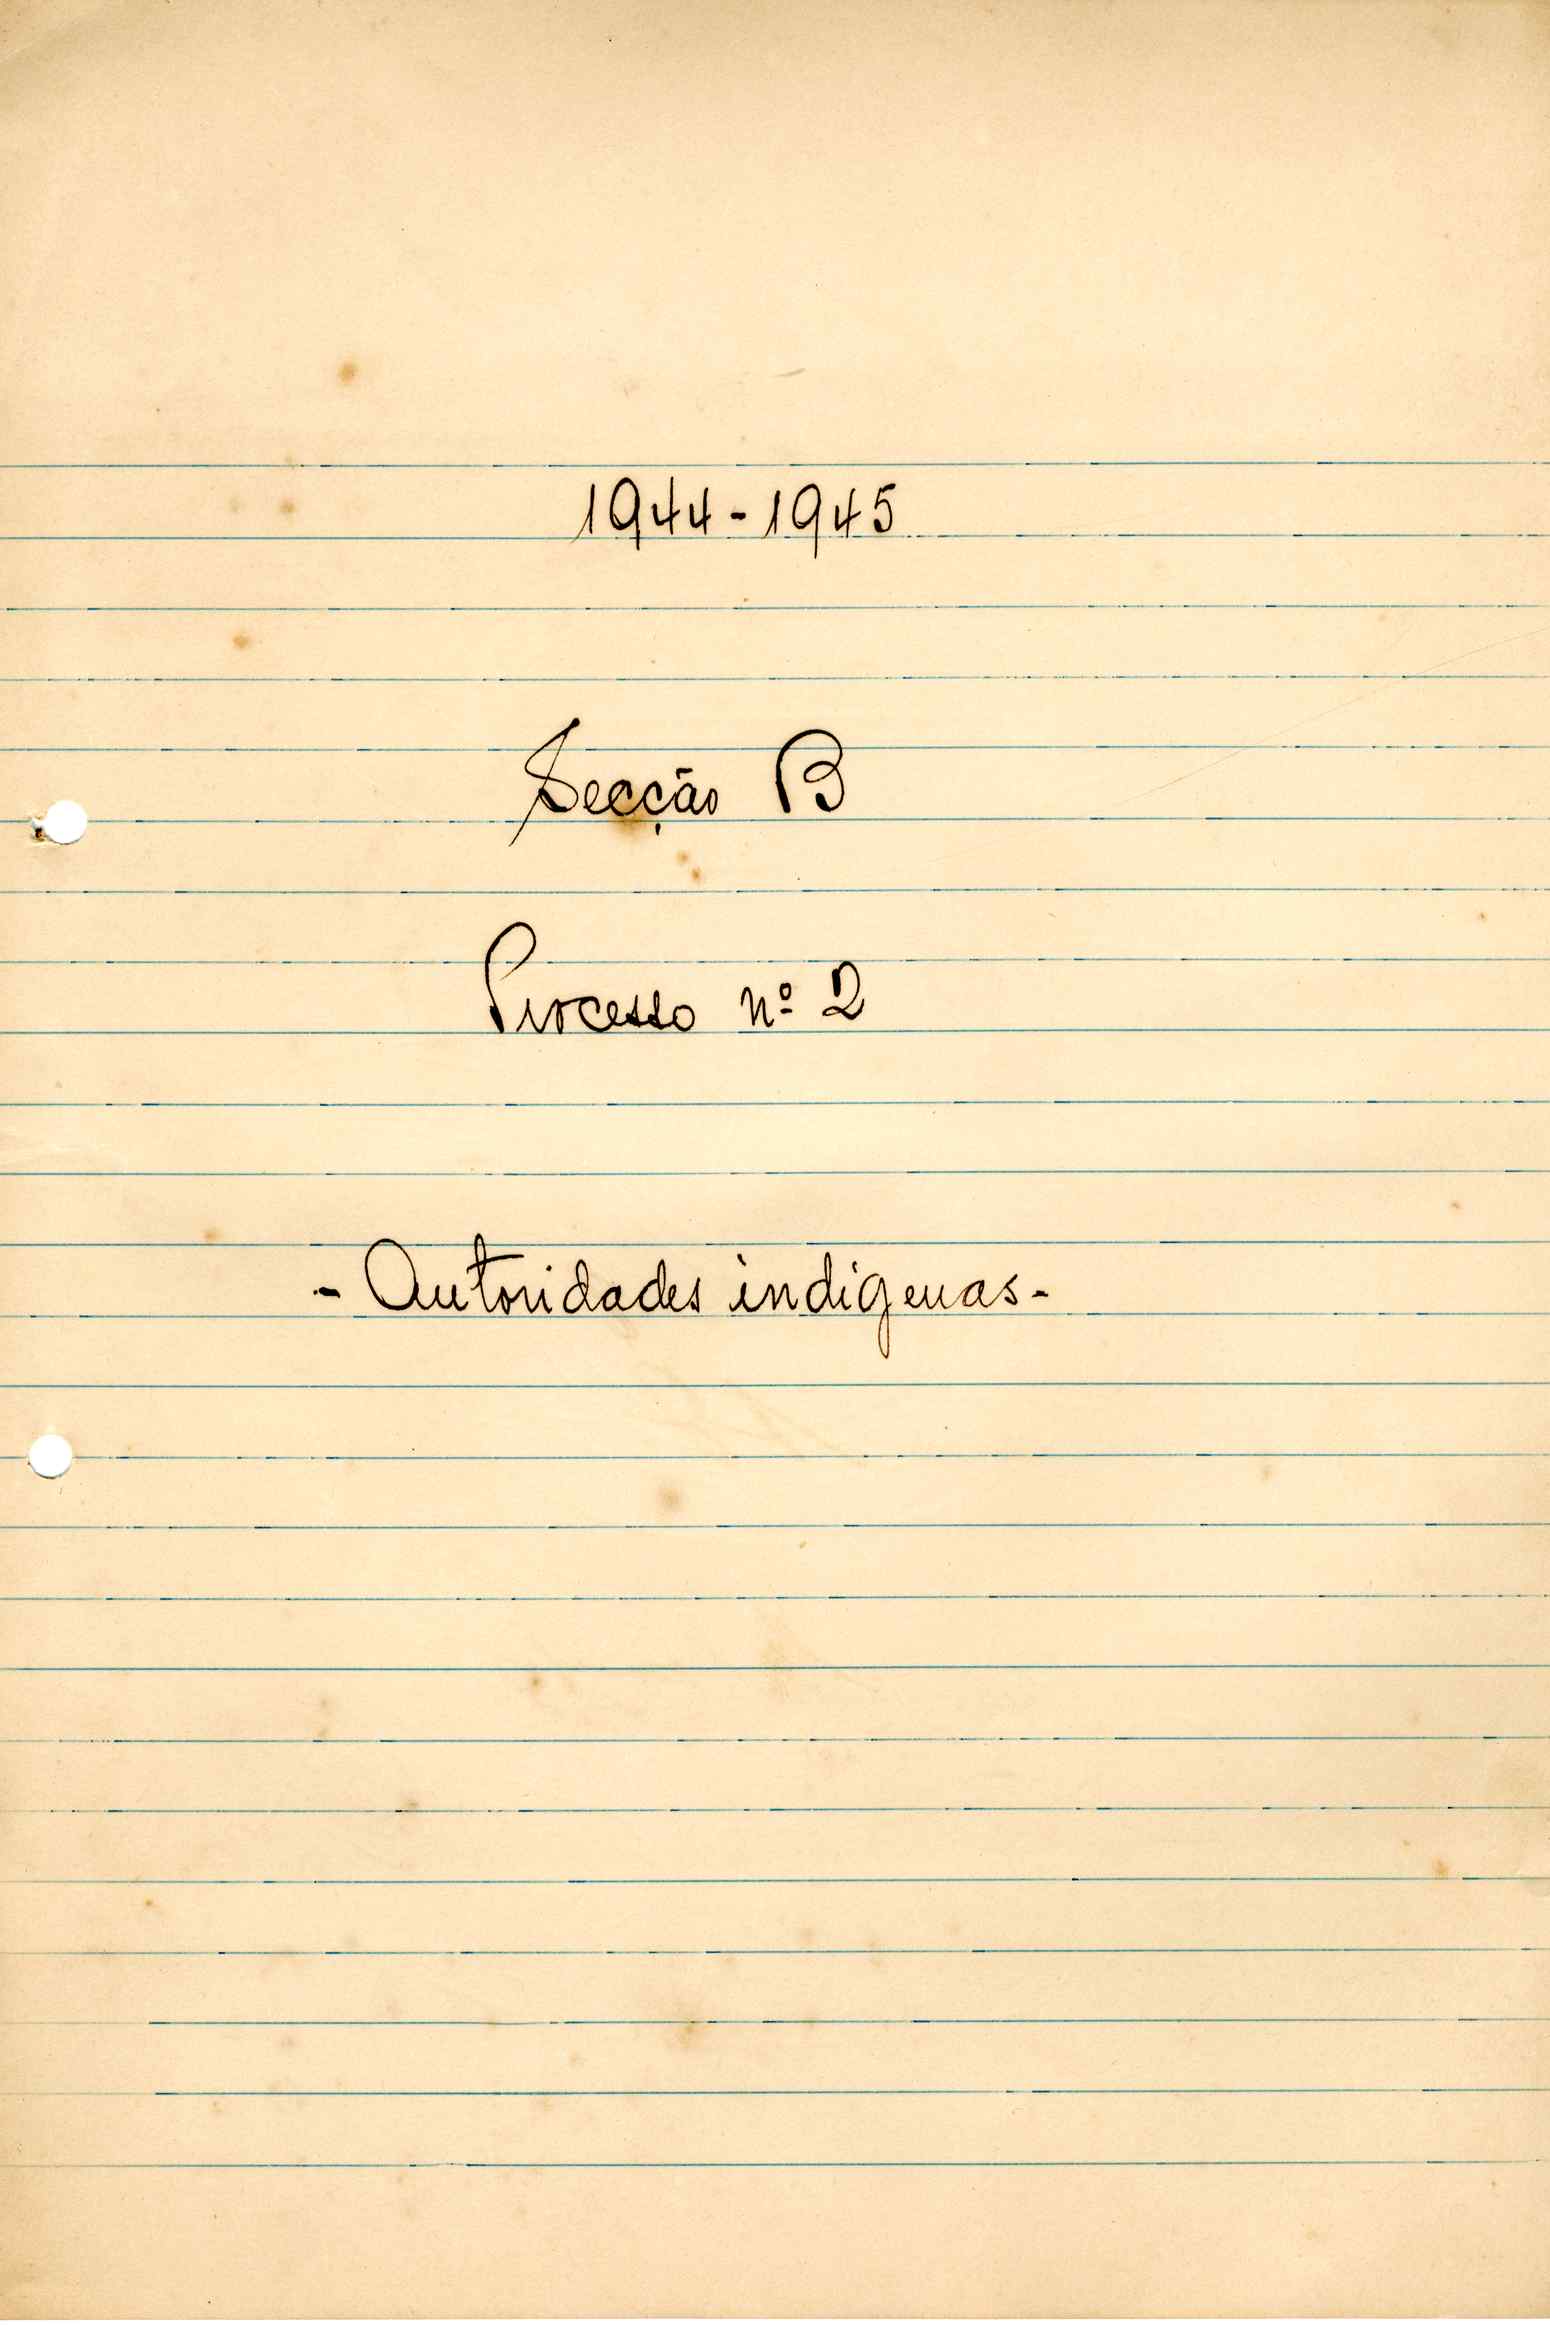 1944-1945
Secção B
Processo nº 2
- Autoridades indigenas -